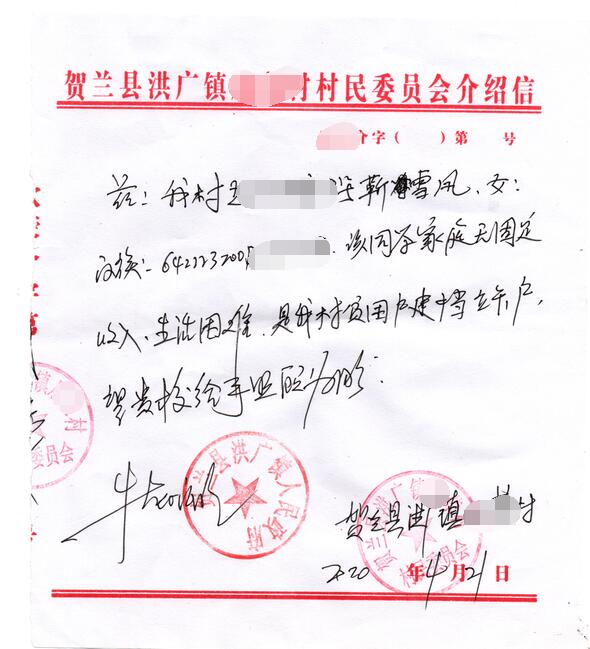 贺兰县洪广镇 村村民委员会介绍信
介字( )第 号
兹:我村 学靳雪凤、女:
汉族:642223200 该同学家庭无固定
收入、生活困难、是我村贫困户建档立卡户,
望贵校给予照顾为盼:
贺兰县洪广镇人民政府
贺兰县洪 镇 村
2020年4月21日
贺兰县洪广镇 村 委员会
洪广镇人 村 委员会